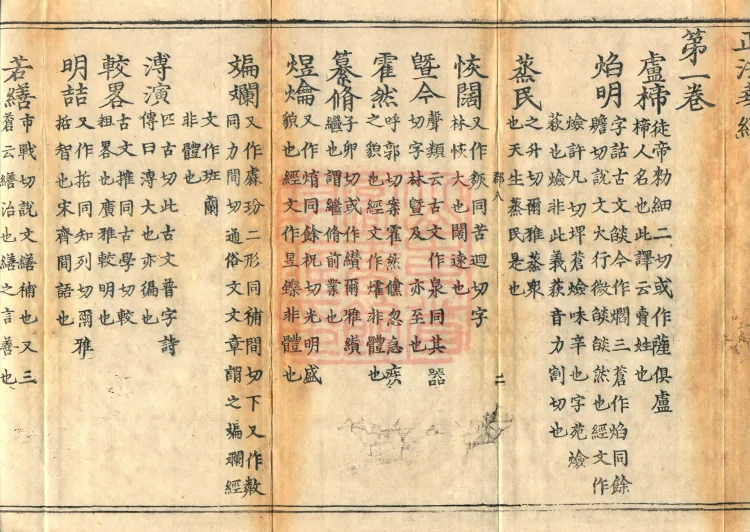 正法華經
第一卷
盧㮛徒帝勑細二切或作薩俱盧
㮛人名也此譯云賣姓也
焰明字詁古文燄今作爓三蒼作焰同余
贍切說文火行微燄燄然也經文作
爓許凡切埤蒼爓味辛也字苑爓
荻也爓非此義荻音力割切也
蒸民之升切爾雅蒸衆
也天生蒸民是也
恢闊又作㷇同苦迴切字
林恢大也闊遠也
曁今聲類云古文作臮同其器
切字林曁及也亦至也
霍然呼郭切案霍然儵忽急疾
之貌也經文作㸌非體也
纂脩子卯切或作纉爾雅纉
繼也謂繼脩前業也
煜爚又作焴同餘祝切光明盛
貌也經文作昱鑠非體也
斒斕又作虨玢二形同補間切下又作斁
同力間切通俗文文章謂之斒斕經
文作班蘭
非體也
溥演匹古切此古文普字詩
傳曰溥大也亦徧也
較畧古文搉同古學切較
粗畧也廣雅較明也
明喆又作哲同知列切爾雅
哲智也宋齊間語也
若繕市戰切說文繕補也又三
蒼云繕治也繕之言善也
郡八
二